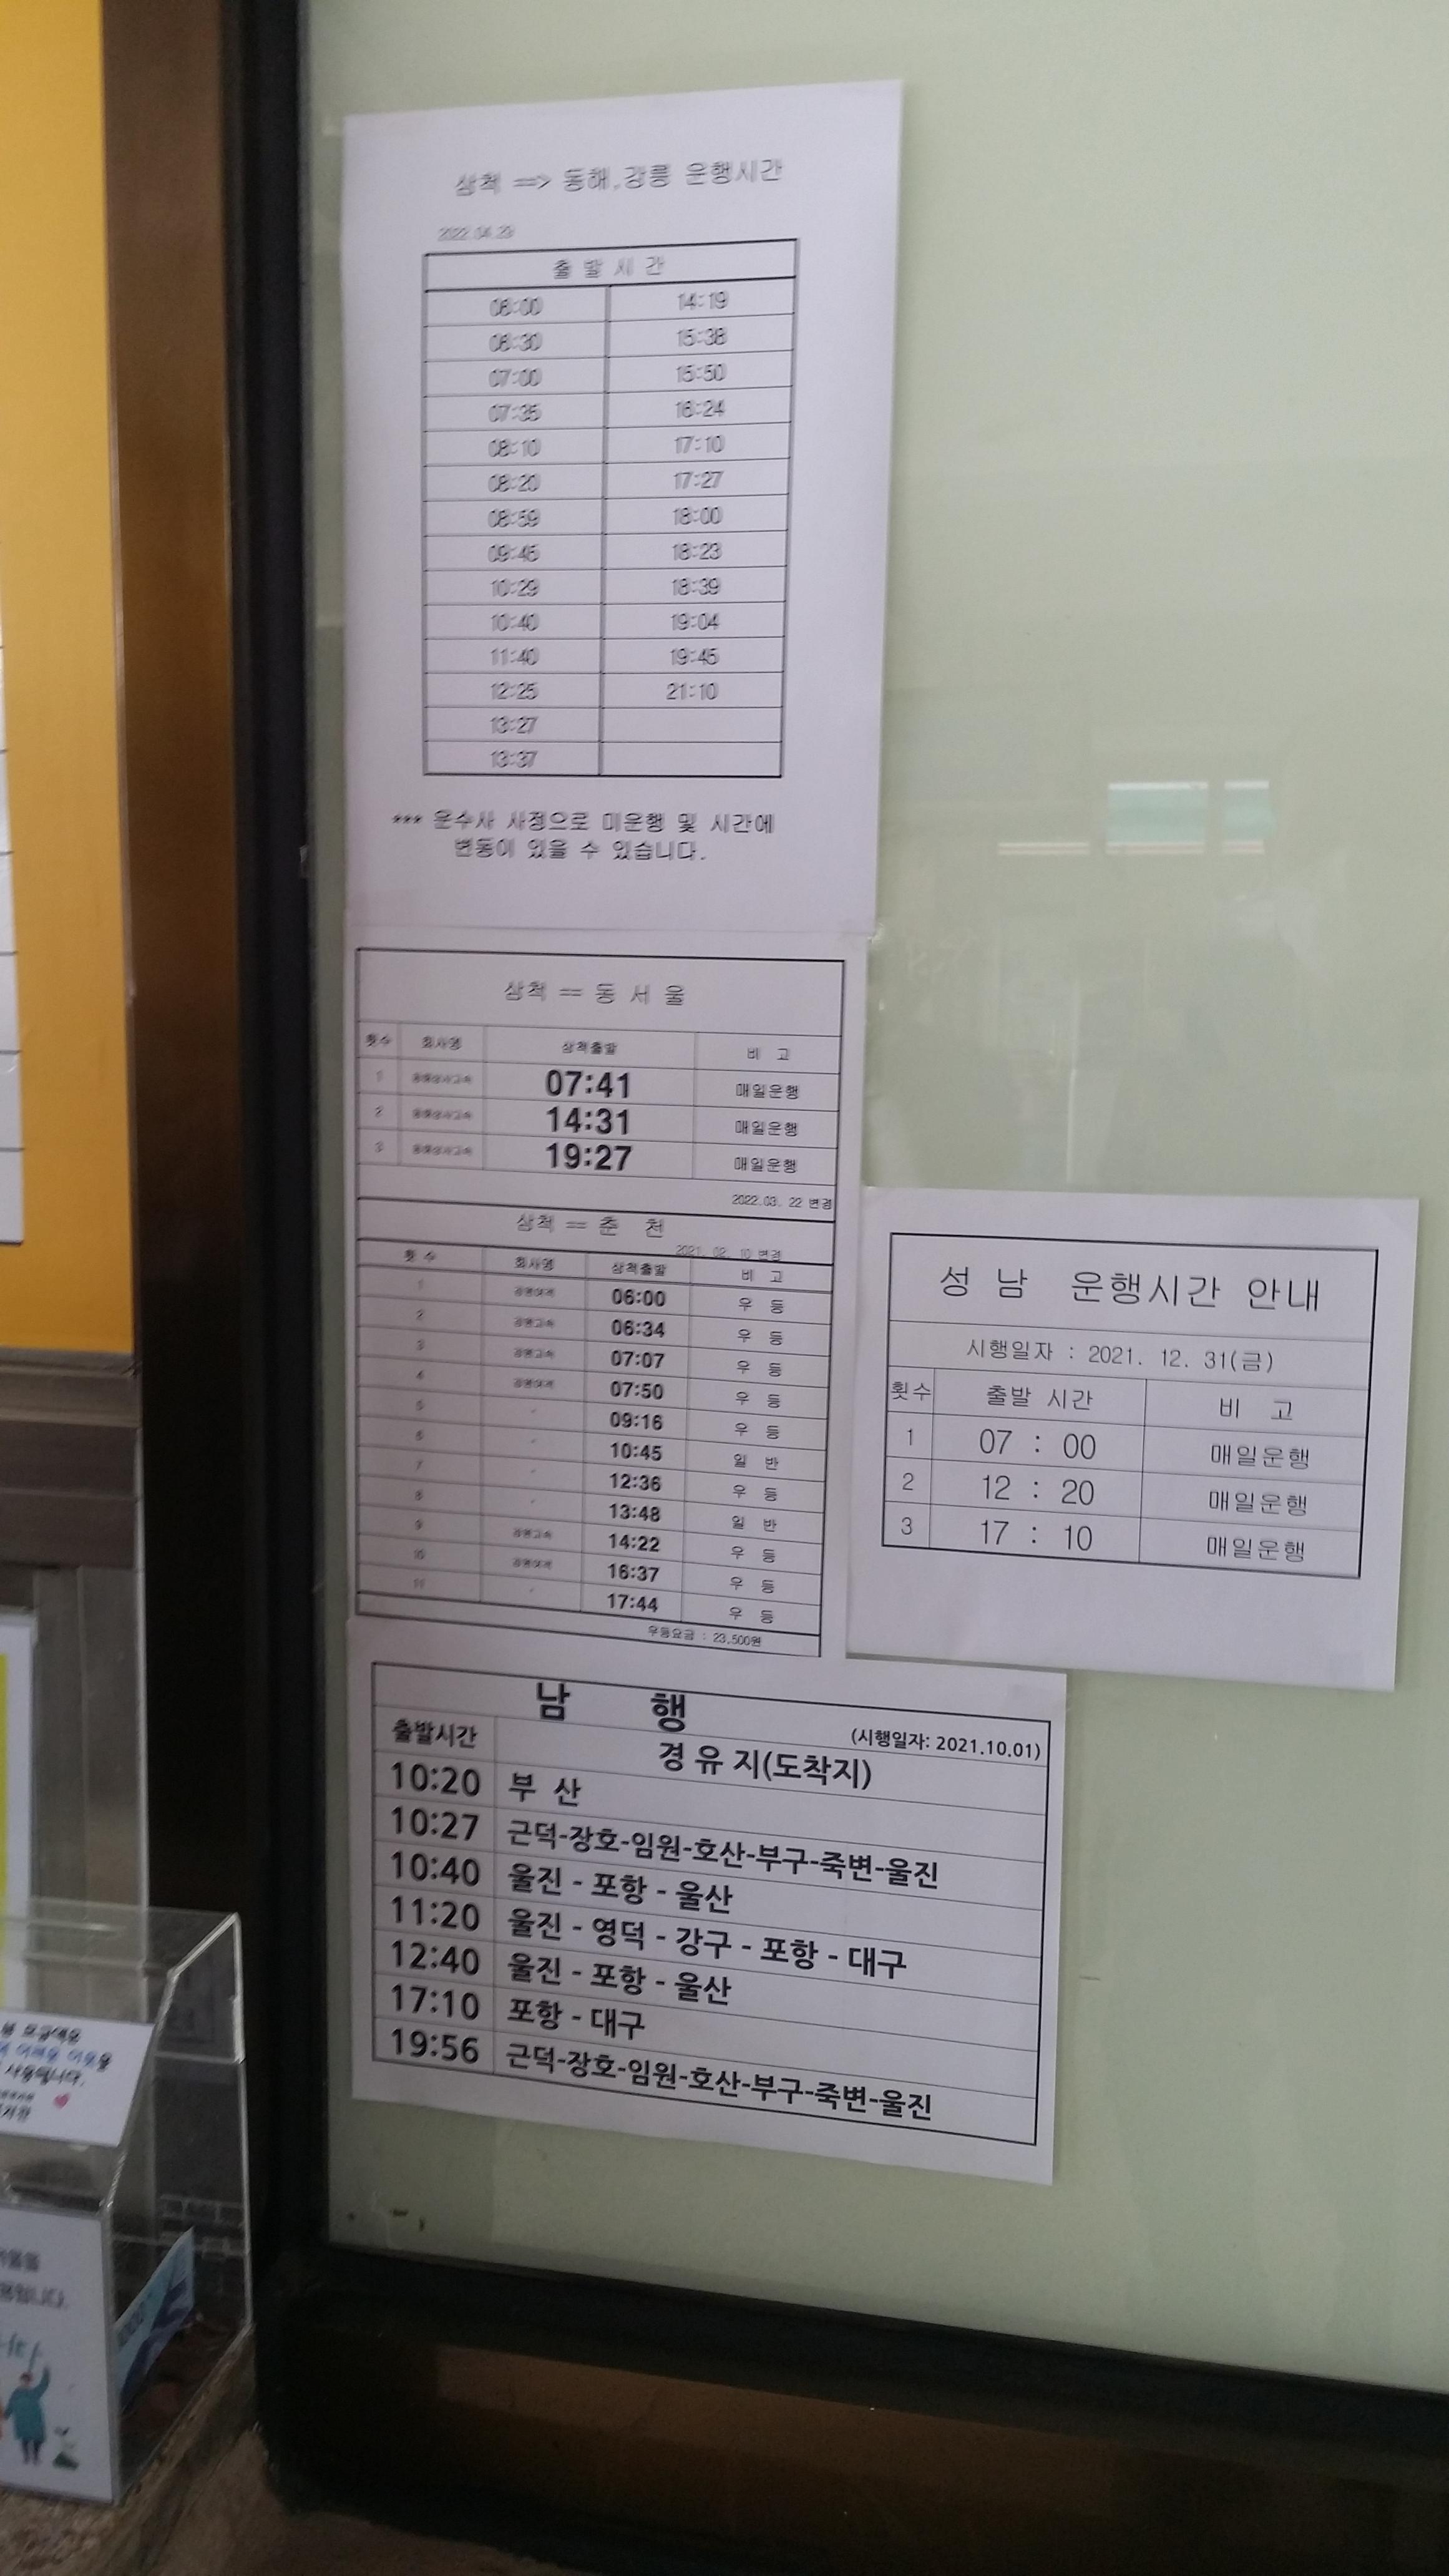 삼척 => 동해,강릉 운행시간
2022.04.23
출 발 시 간
06:00 14:19
06:30 15:38
07:00 15:50
07:35 16:24
08:10 17:10
08:20 17:27
08:59 18:00
09:45 18:23
10:29 18:39
10:40 19:04
11:40 19:45
12:25 21:10
13:27
13:37
*** 운수사 사정으로 미운행 및 시간에
변동이 있을 수 있습니다.
삼척 == 동 서 울
횟수 회사명 삼척출발 비 고
1 07:41 매일운행
2 14:31 매일운행
3 19:27 매일운행
2022.03. 22 변경
삼척 == 춘 천
2021. 02. 10 변경
횟 수 회사명 삼척출발 비 고
1 06:00 우 등
2 강원고속 06:34 우 등
3 강원고속 07:07 우 등
4 07:50 우 등
5 09:16 우 등
6 10:45 일 반
7 12:36 우 등
8 13:48 일 반
9 강원고속 14:22 우 등
10 16:37 우 등
11 17:44 우 등
우등요금 : 23,500원
성 남 운행시간 안내
시행일자 : 2021. 12. 31(금)
횟수 출발 시간 비 고
1 07 : 00 매일운행
2 12 : 20 매일운행
3 17 : 10 매일운행
남 행
(시행일자: 2021.10.01)
출발시간 경 유 지(도착지)
10:20 부 산
10:27 근덕-장호-임원-호산-부구-죽변-울진
10:40 울진 - 포항 - 울산
11:20 울진 - 영덕 - 강구 - 포항 - 대구
12:40 울진 - 포항 - 울산
17:10 포항 - 대구
19:56 근덕-장호-임원-호산-부구-죽변-울진